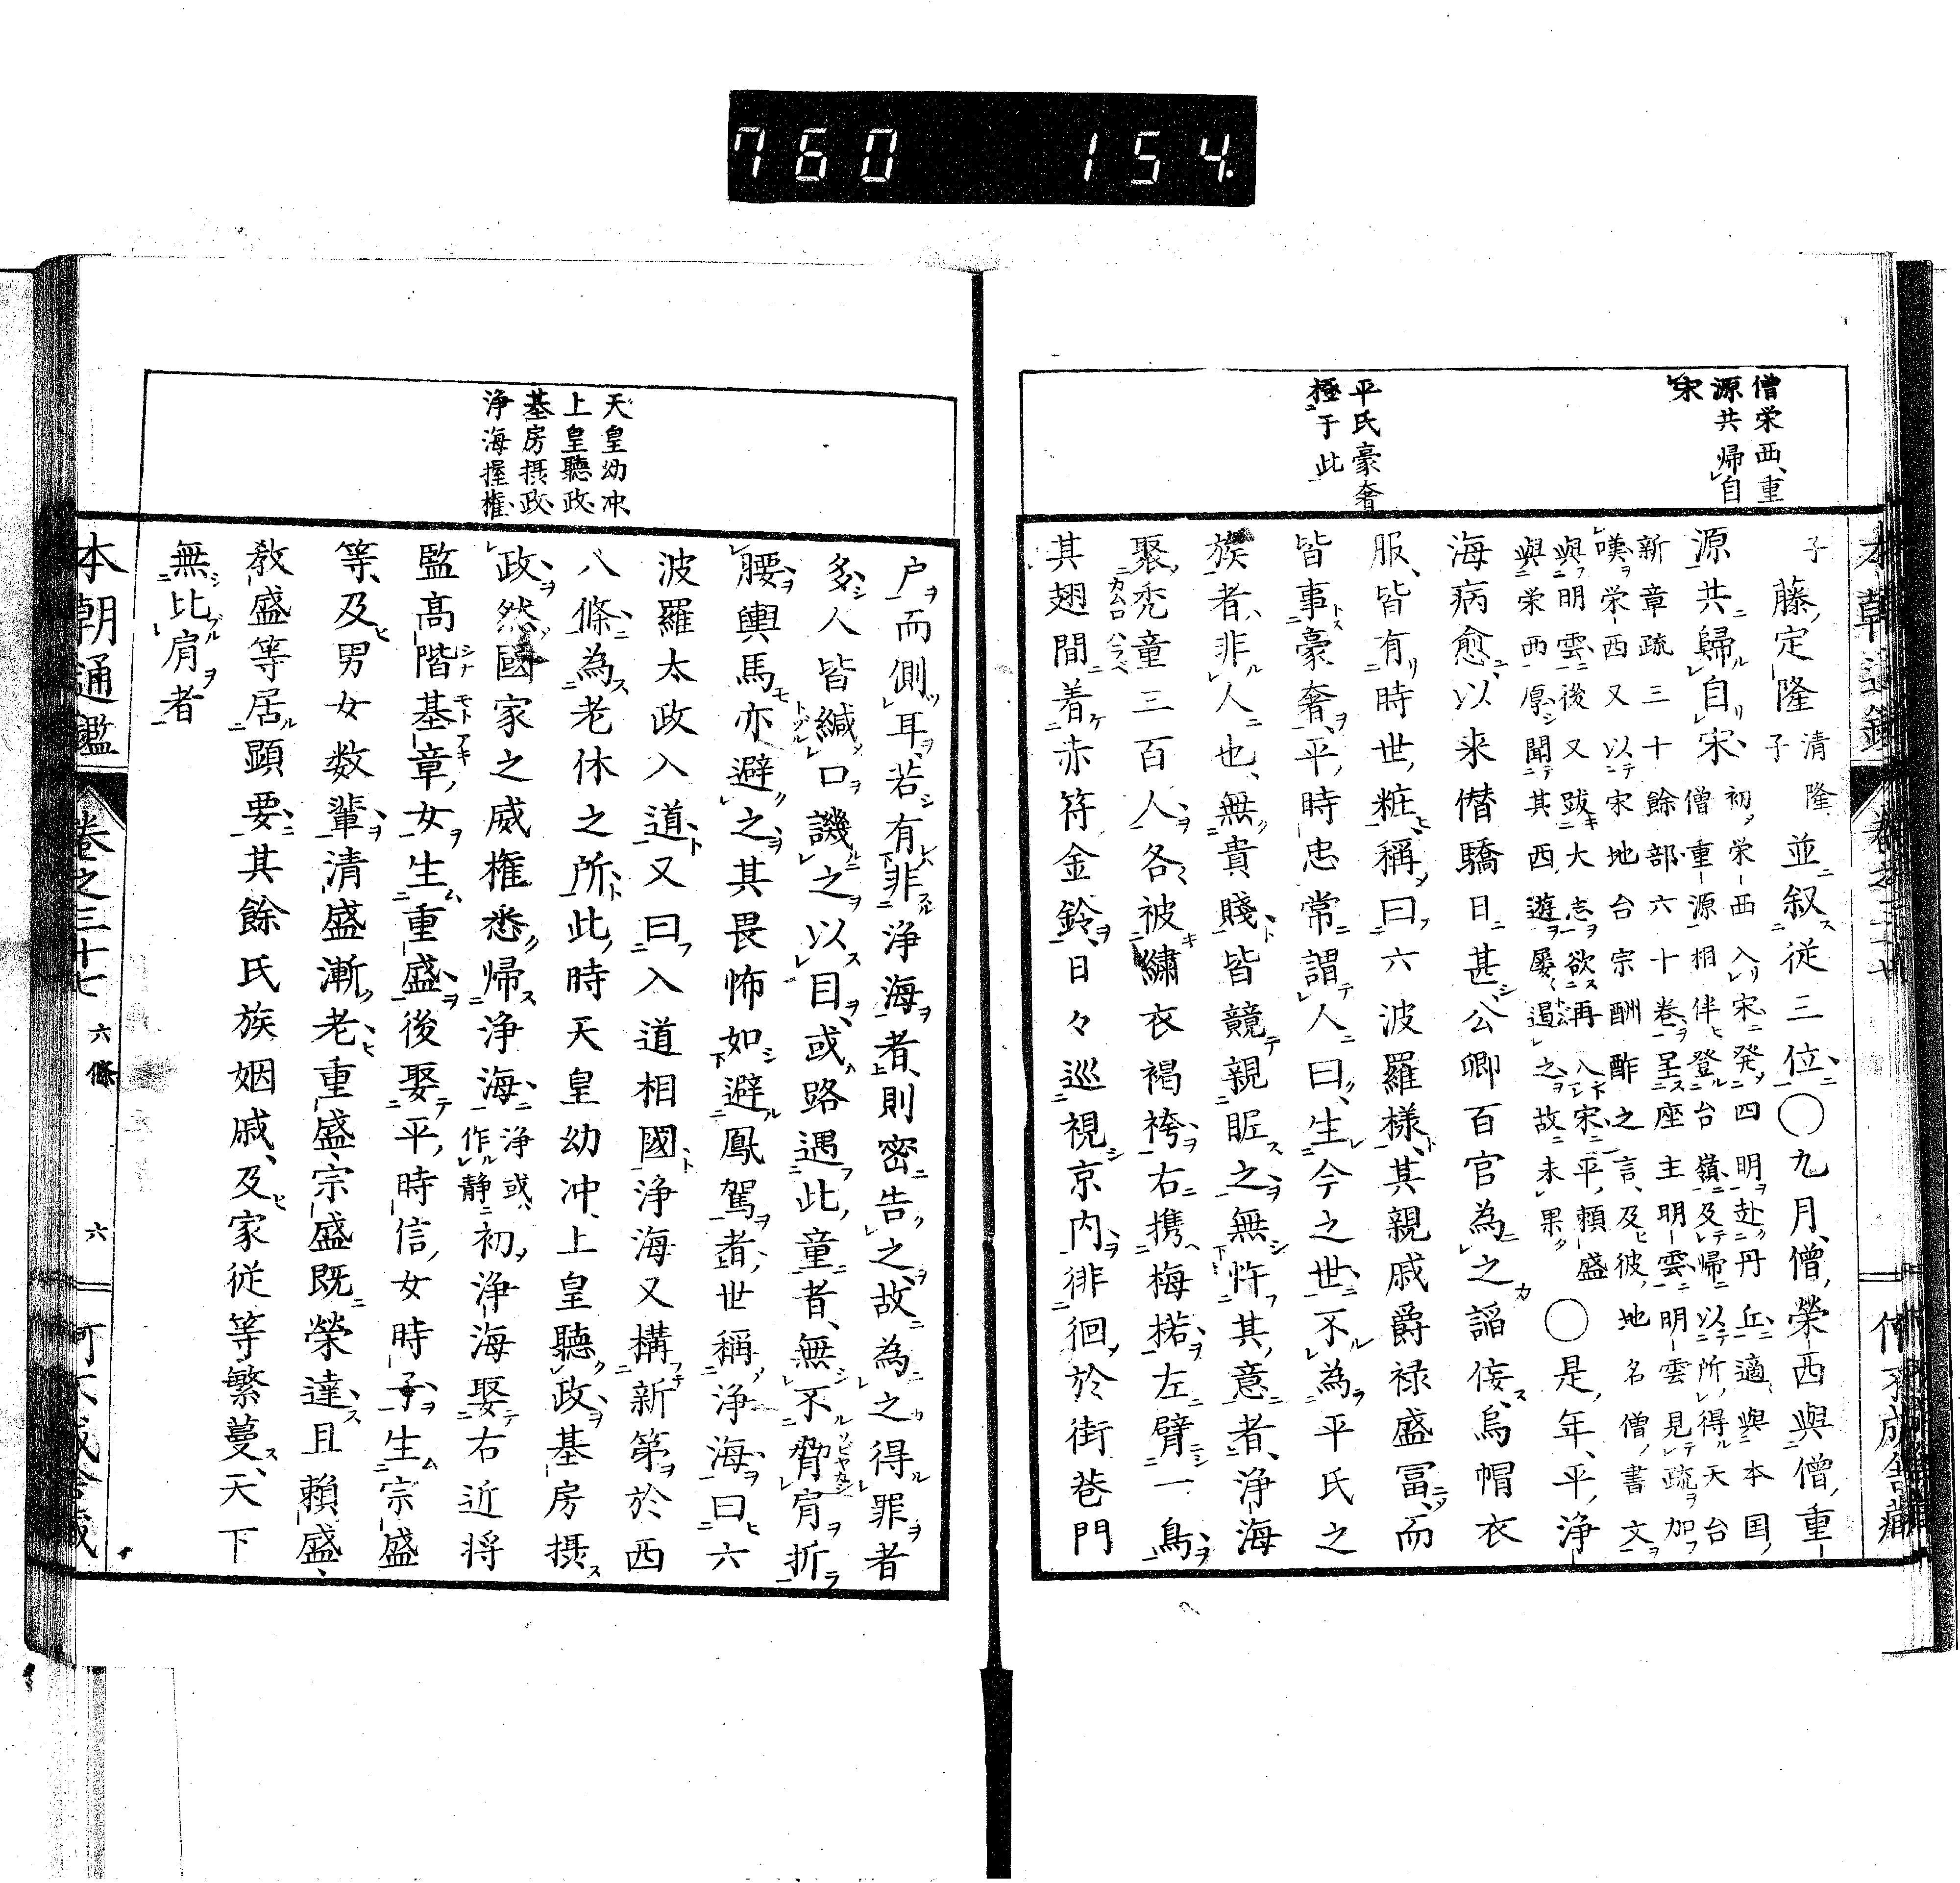 760 154.
僧栄西、重
源共帰自
宋
平氏豪奢
極于此
子
藤定隆 清隆子 並叙従三位〇九月、僧榮西與僧重
源共歸自宋、初栄西入宋発四明赴丹丘適與本国
僧重源相伴登台嶺及帰以所得天台
新章疏三十餘部六十卷呈座主明雲明雲見疏加
嘆栄西又以宋地台宗酬酢之言、及彼地名僧書文
與明雲後又跋大志欲再入宋平頼盛
與栄西厚聞其西遊屡遏之故未果 〇是年、平浄
海病愈以来僭驕日甚公卿百官為之謟侫烏帽衣
服、皆有時世粧稱曰六波羅様其親戚爵禄盛冨而
皆事豪奢、平時忠常謂人曰、生今之世不為平氏之
族者、非人也、無貴賤皆競親眤之無忤其意者、浄海
聚禿童三百人各被繍衣褐袴右携梅楉左臂一鳥
其翅間着赤符金鈴、日々巡視京内徘徊於街巷門
本朝通鑑 卷之三十七 六條 六
天皇幼冲
上皇聽政
基房摂政
浄海握権
户而側耳、若有非浄海者、則密告之、故為之得罪者
多人皆緘口譏之以目、或路遇此童者、無不脅肩折
腰輿馬亦避之其畏怖如避鳳駕者、世稱浄海曰六
波羅太政入道又曰入道相國浄海又構新第於西
八條為老休之所此時天皇幼冲、上皇聽政基房摂
政然國家之威權悉帰浄海浄或作静初浄海娶右近将
監高階基章女生重盛後娶平時信女時子生宗盛
等、及男女数輩清盛漸老重盛、宗盛既榮達且頼盛、
教盛等居顕要其餘氏族姻戚、及家従等繁蔓天下
無比肩者